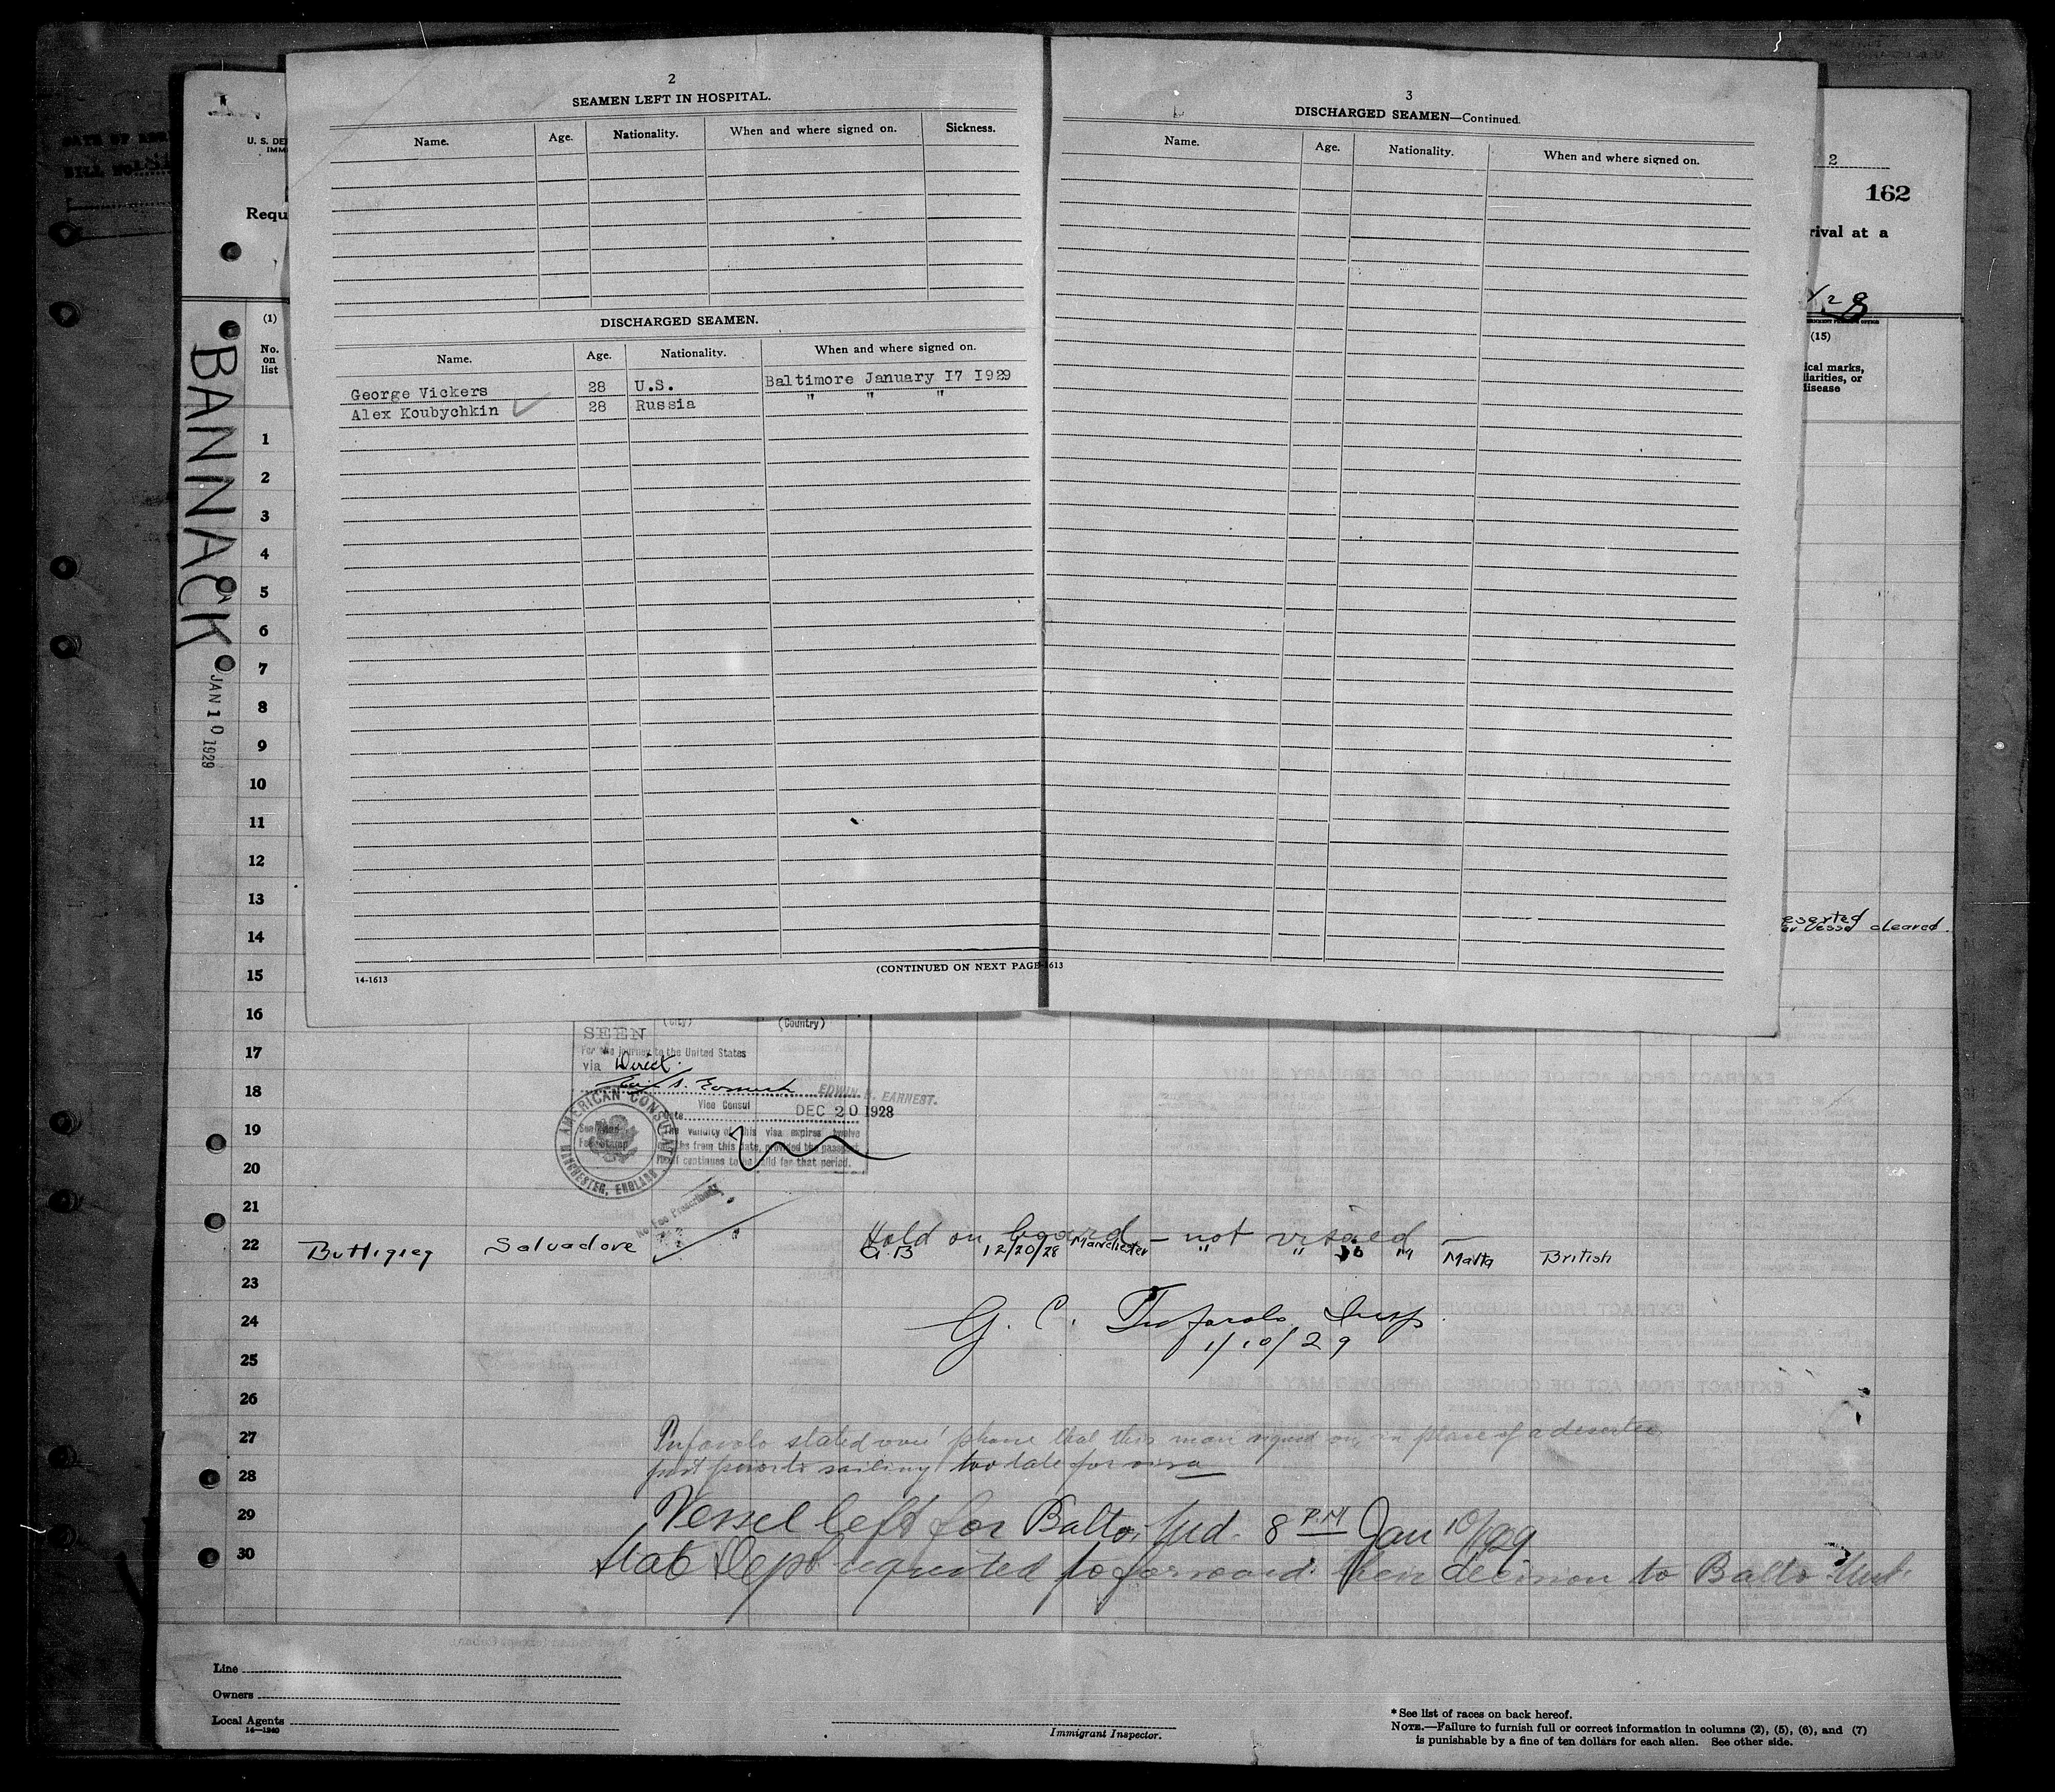 2
SEAMEN LEFT IN HOSPITAL.
Name. Age. Nationality. When and where signed on. Sickness.
DISCHARGED SEAMEN.
Name. Age. Nationality. When and where signed on.
George Vickers 28 U.S. Baltimore January 17 1929
Alex Koubychkin ✓ 28 Russia " " "
14-1613
(CONTINUED ON NEXT PAGE
3
DISCHARGED SEAMEN—Continued.
Name. Age. Nationality. When and where signed on.
1613
U. S. DE
IMM
Requ
2
162
rival at a
(1)
No.
on
list
(15)
ical marks,
liarities, or
disease
BANNACK
JAN 10 1929
1
2
3
4
5
6
7
8
9
10
11
12
13
14
eserted
vessel cleared.
15
16
(City) (Country)
SEEN
17
For the journey to the United States
via Direct.
18
EDWIN EARNEST.
Vice Consul
DEC 20 1928
AMERICAN CONSULATE
MANCHESTER, ENGLAND
19
The validity of this visa expires twelve
months from this date, provided the passport
continues to be valid for that period.
20
No Fee Prescribed
21
Hold on board — not visaed —
22 Buttigieg Salvadore " 12/20/28 Manchester " " " Malta British
23
24
G. C. Insp.
1/10/29
25
26
27
stated over phone that this man signed on in place of a deserter
28
just sailing too late for visa
29
Vessel left for Balto, Md. 8 P.M Jan 10/29
30
State Dept requested to forward their decision to Balto Md.
Line
Owners
Local Agents
14—1240
Immigrant Inspector.
* See list of races on back hereof.
NOTE.—Failure to furnish full or correct information in columns (2), (5), (6), and (7)
is punishable by a fine of ten dollars for each alien. See other side.